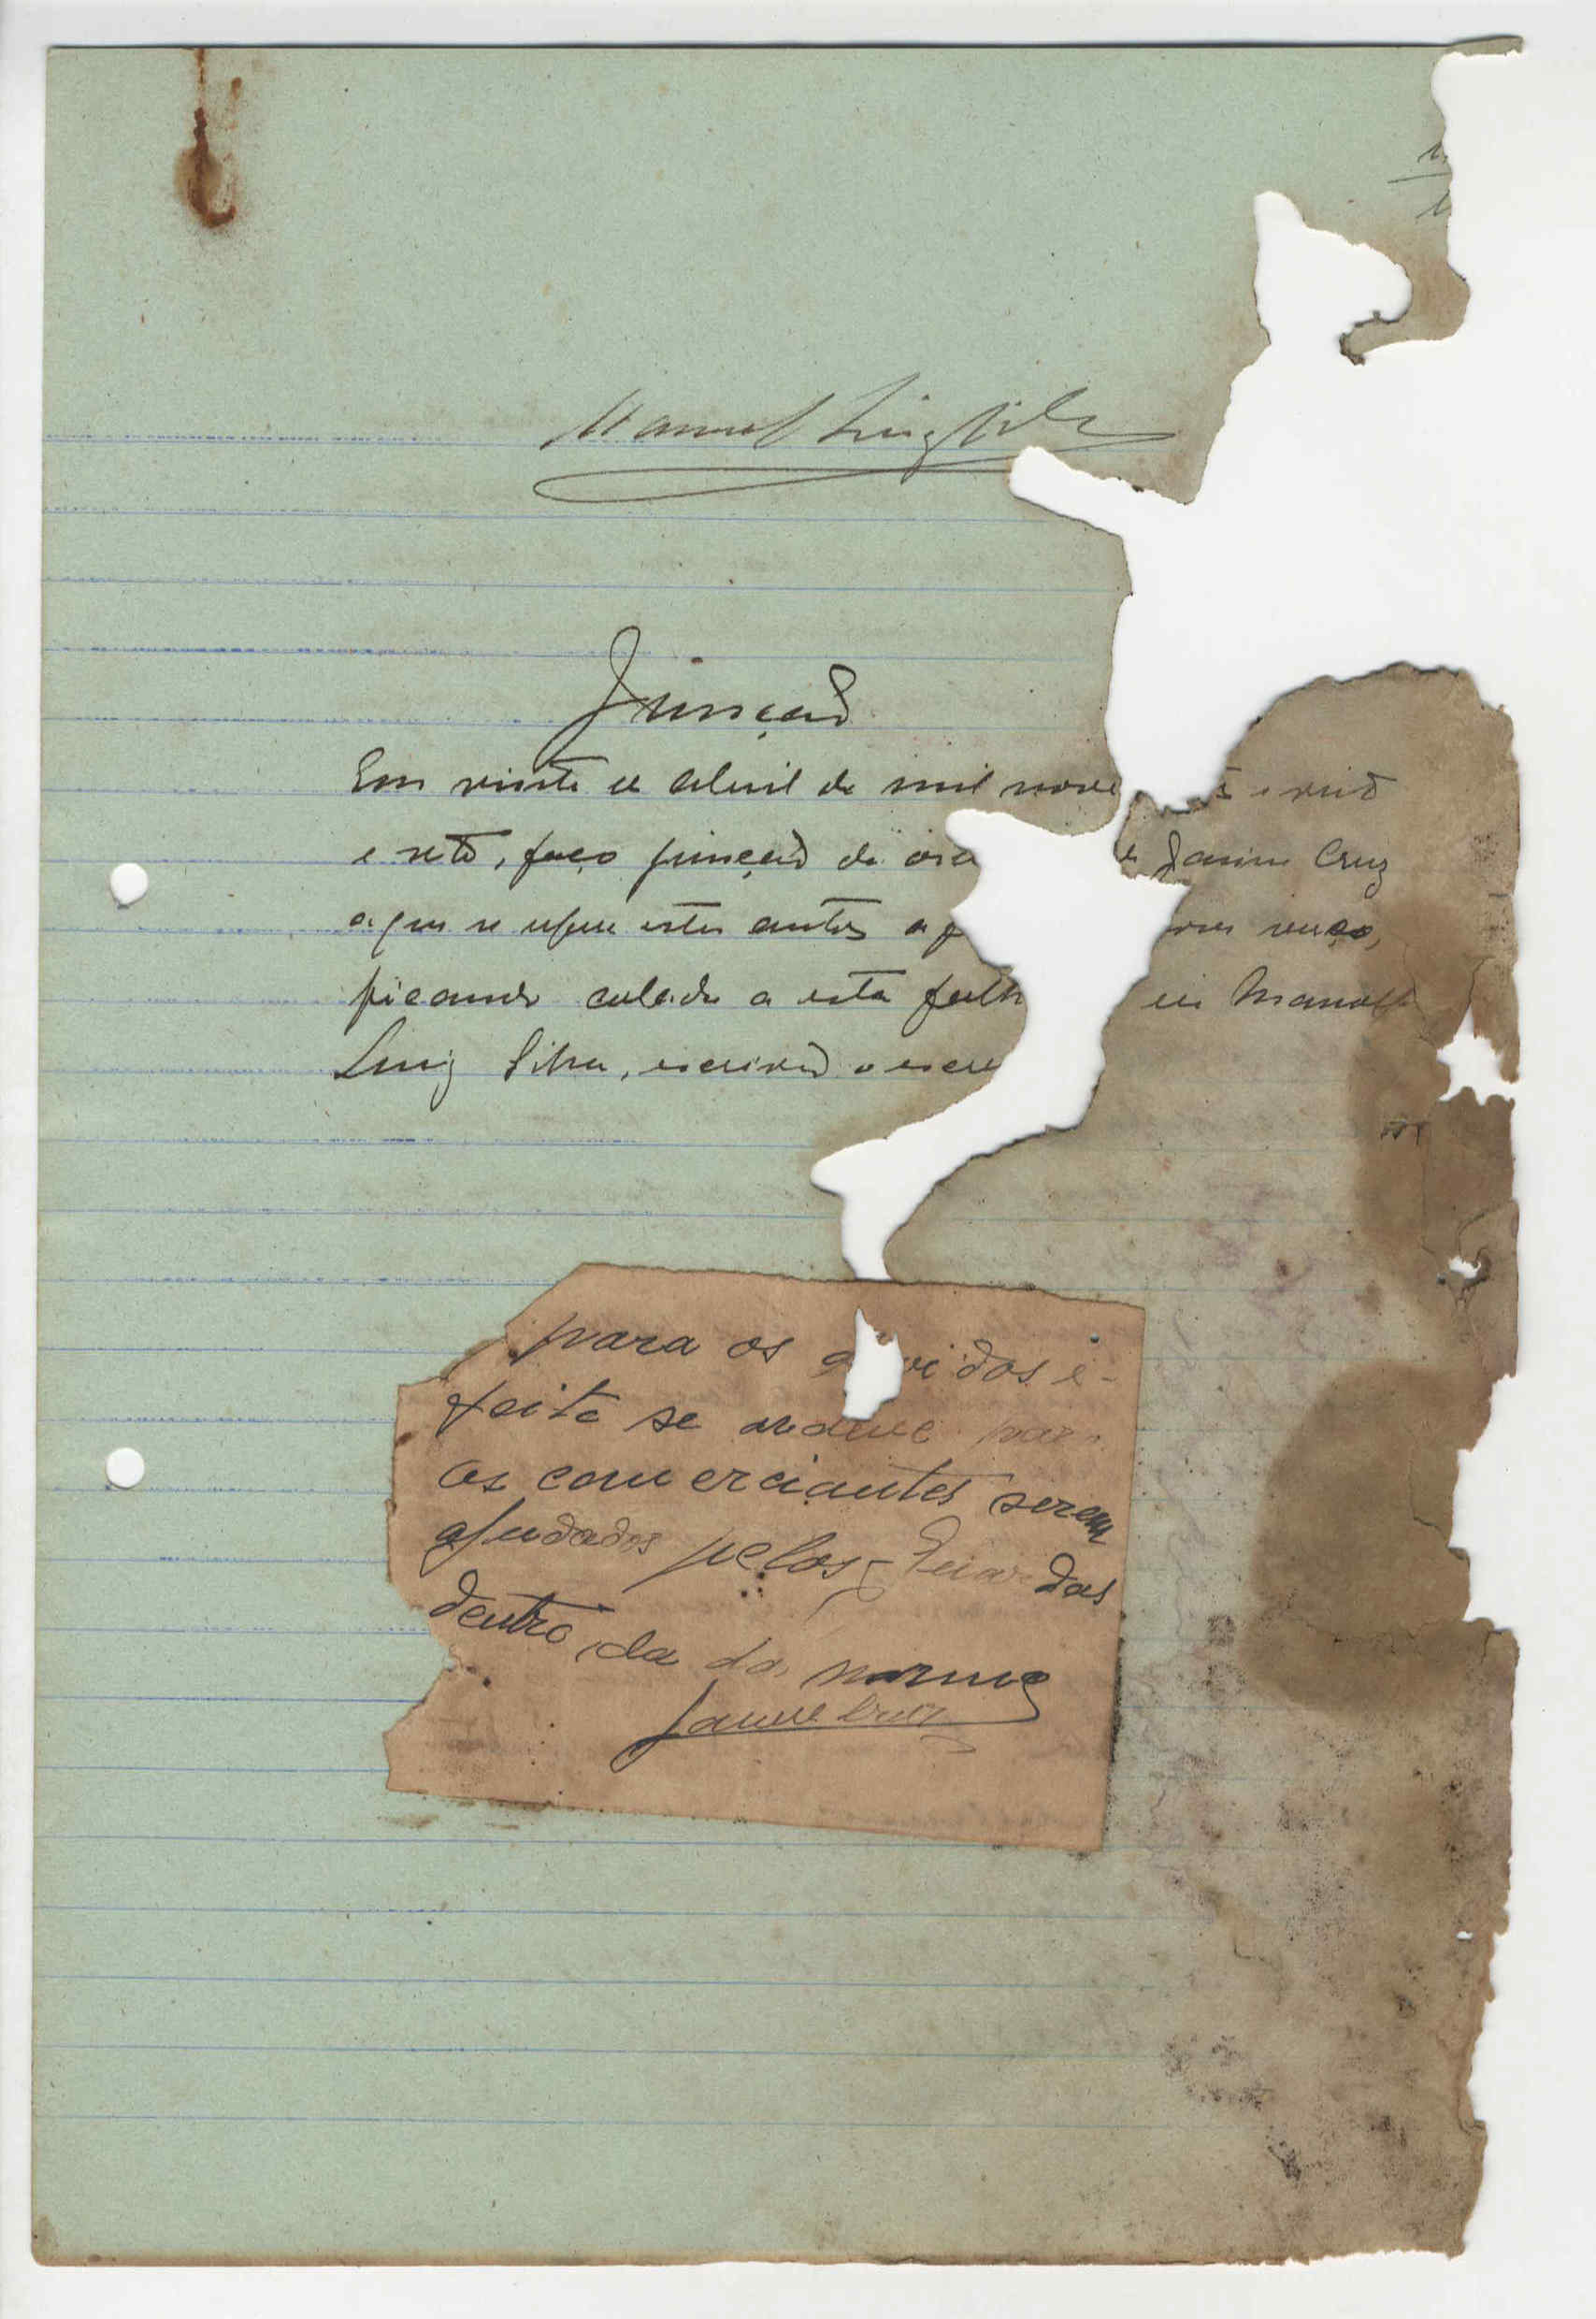 Manuel Luiz Silva
Junção
Em vinte de Abril de mil nove e vinte
e sete, faço junção da Jaime Cruz
a que se refere estes autos
ficando colado a esta folh eu Manuel
Luiz Silva, escrivão o escre
para os vidos e-
feito se ordene para
os comerciantes serem
ajudados pelos Guardas
dentro da da norma
Jaime Cruz